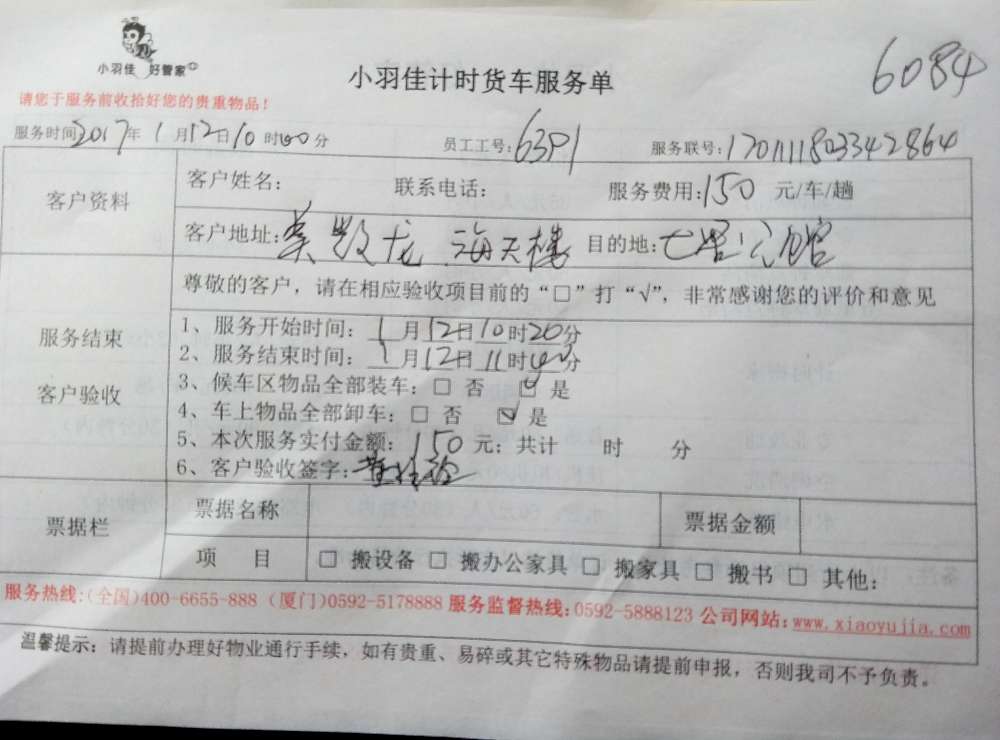 小羽佳 好管家
小羽佳计时货车服务单
6084
请您于服务前收拾好您的贵重物品！
服务时间2017年1月12日10时00分 员工工号: 服务联号:1701111803342864
客户资料
客户姓名: 联系电话: 服务费用:150 元/车/趟
客户地址: 龙 海天楼 目的地:七里公馆
服务结束
客户验收
尊敬的客户，请在相应验收项目前的“□”打“√”，非常感谢您的评价和意见
1、服务开始时间：1月12日10时20分
2、服务结束时间：1月12日11时40分
3、候车区物品全部装车：□ 否 ☑ 是
4、车上物品全部卸车：□ 否 ☑ 是
5、本次服务实付金额：150元；共计 时 分
6、客户验收签字：
票据栏
票据名称 票据金额
项 目 □ 搬设备 □ 搬办公家具 □ 搬家具 □ 搬书 □ 其他：
服务热线:(全国)400-6655-888 (厦门)0592-5178888 服务监督热线:0592-5888123 公司网站:www.xiaoyujia.com
温馨提示：请提前办理好物业通行手续，如有贵重、易碎或其它特殊物品请提前申报，否则我司不予负责。